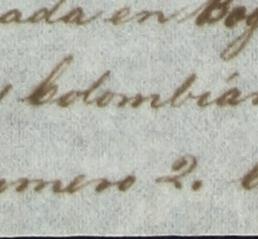 ada en Bog
Colombian
umero 2.